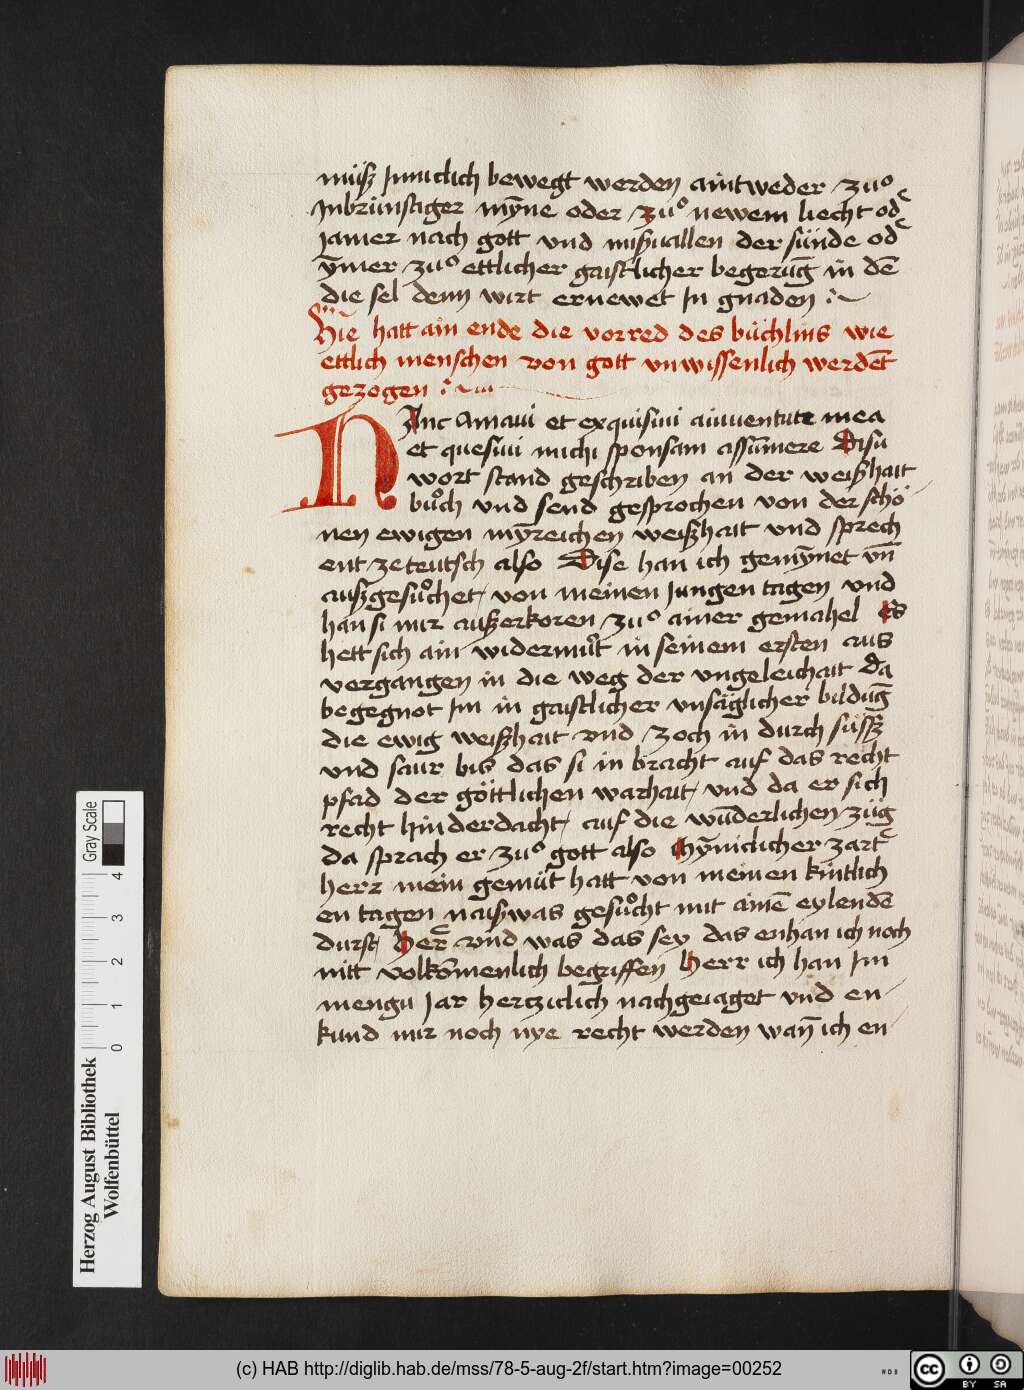 müß Jnniclich bewegt werden aintweder zuͦ
Jnbrünstiger mȳne oder zuͦ newem liecht od͛
Jamer nach gott vnd mißuallen der sünde od͛
ȳmer zuͦ ettlicher gaistlicher begerūg in dē
die sel denn wirt ernewet Jn gnaden
Hie hatt ain ende die vorred des büchlins wie
ettlich menschen von gott vnwissenlich werdēt
gezogen
HAnc Amaui et exquisiui aiuuentute mea
et quesiui michi sponsam assūmere Disü
wort stand geschriben an der weißhait
buͦch vnd send gesprochen von der schö
nen ewigen mȳreichen weißhait vnd sprech
ent ze teutsch also Dise han ich gemȳnet vn̄
außgesuͦchet von meinen Jungen tagen vnd
han si mir außerkoren zuͦ ainer gemahel Es
hett sich ain widermuͦt in seinem ersten aus
vergangen in die weg der vngeleichait Da
begegnot Jm in gaistlicher vnsäglicher bildūg
die ewig weißhait vnd zoch in durch süsß
vnd saur bis das si in bracht auf das recht
pfad der göttlichen warhait vnd da er sich
recht hinderdacht auf die wūderlichen züg
da sprach er zuͦ gott also Mȳniclicher zart͛
herr mein gemüt hatt von meinen kintlich
en tagen naißwas gesuͦcht mit ainē eylendē
durst Her͛ vnd was das sey das enhan ich noch
nitt volkōmenlich begriffen Herr ich han Jm
mengu Jar hertziclich nachgeiaget vnd en
kund mir noch nye recht werden wan̄ ich en
Gray Scale
4
3
2
1
0
Herzog August Bibliothek
Wolfenbüttel
(c) HAB http://diglib.hab.de/mss/78-5-aug-2f/start.htm?image=00252
WDB
cc
BY SA